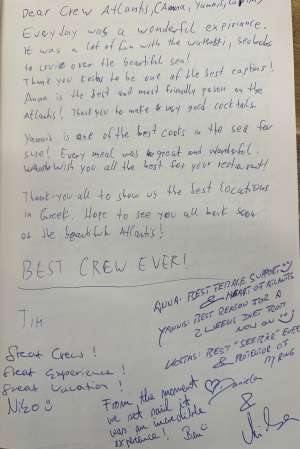 Dear Crew Atlantis, (Anna, Yannis, Captain)
Everyday was a wonderful expiriance.
It was a lot of fun with the watertoi, seabobs
to cruise over the beautiful sea!
Thank you Kostas to be one of the best captins!
Anna is the best and most friendly person on the
Atlantis! Thank you to make very good cocktails
Yannis is one of the best cooks in the sea for
sure! Every meal was great and wonderful.
wish you all the best for your restaurant!
Thank you all to show us the best locations
in Greek. Hope to see you all back soon
on the beautiful Atlantis!
BEST CREW EVER!
TIM
Great Crew!
Great Experience!
Great Vacation!
Nizo
ANNA: BEST FEMALE SUPPORT
& HEART OF ATLANTIS
YANNIS: BEST REASON FOR A
2 WEEKS DIET FROM
NOW ON
KOSTAS: BEST "SEEBÄR" EVER
& PROTECTOR OF
MY RING
Daniela
&
From the moment
we set sail it
was an incredible
experience! Ben